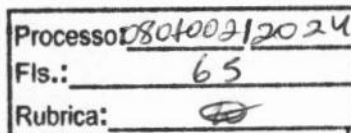 Processo: 0801002/2024
Fls.: 65
Rubrica: